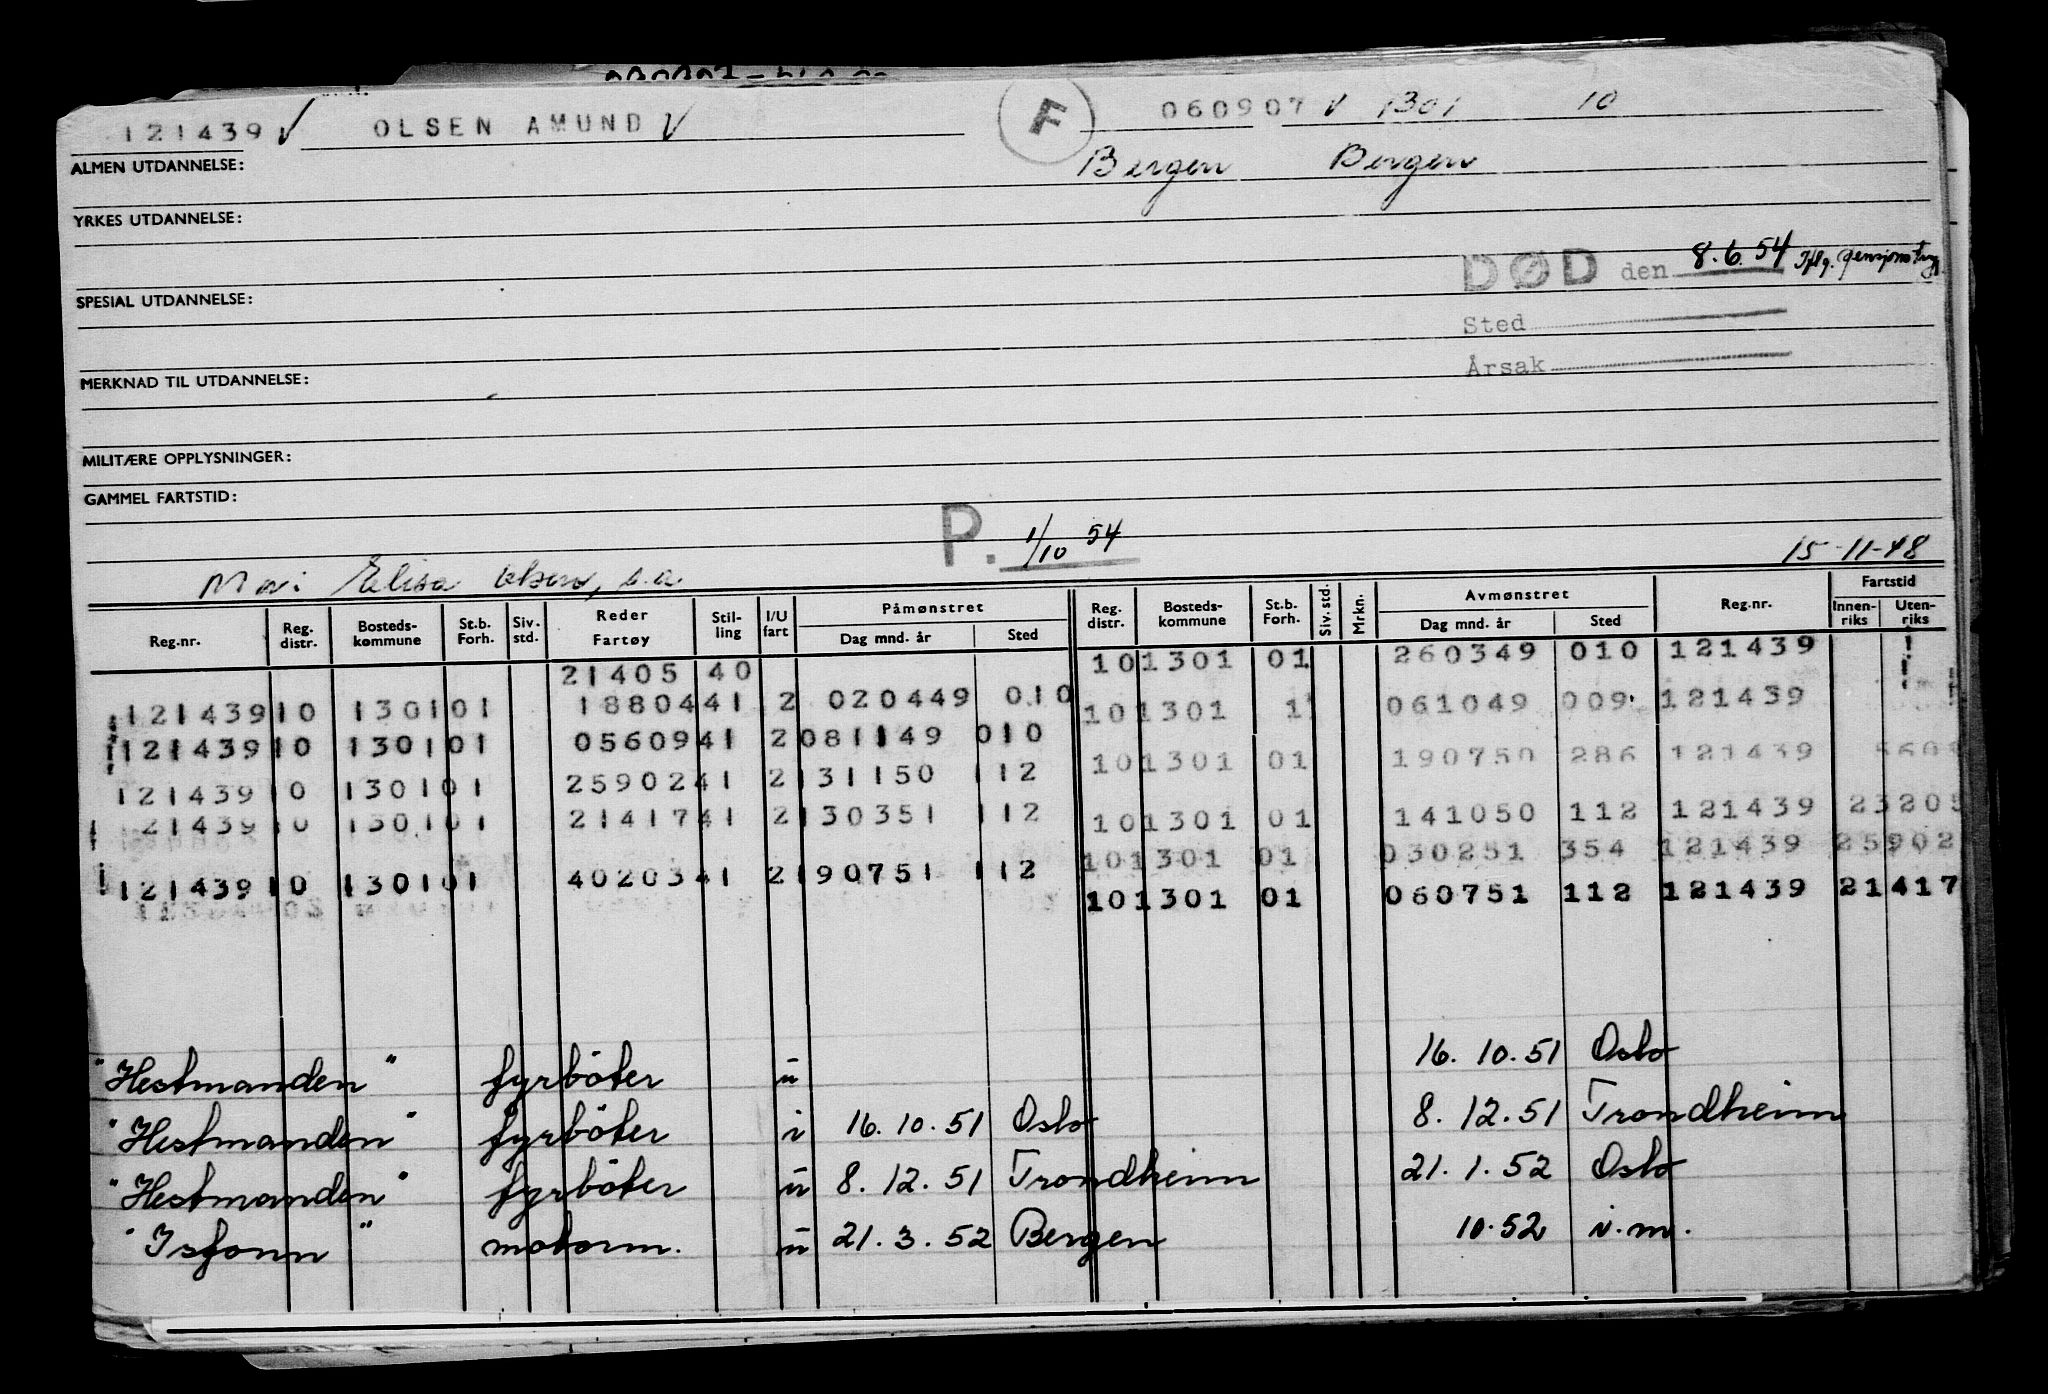 121439 V OLSEN AMUND V F 060907 V 1301 10
ALMEN UTDANNELSE: Bergen Bergen
YRKES UTDANNELSE:
DØD den 8.6.54 Iflg. pensjonstryg
SPESIAL UTDANNELSE:
Sted
Årsak
MERKNAD TIL UTDANNELSE:
MILITÆRE OPPLYSNINGER:
GAMMEL FARTSTID:
P. 1/10 54
15-11-48
Mor: Elisa Olsen, s.a.
Reg.nr. Reg. distr. Bosteds- kommune St.b. Forh. Siv. std. Reder Fartøy Stil- ling I/U fart Påmønstret Dag mnd. år Sted Reg. distr. Bosteds- kommune St.b. Forh. Siv. std. Mrkn. Avmønstret Dag mnd. år Sted Reg.nr. Fartstid Innen- riks Uten- riks
21405 40 10 1301 01 260349 010 121439
121439 10 1301 01 18804 41 2 020449 010 10 1301 1 061049 009 121439
121439 10 1301 01 05609 41 2 081149 010 10 1301 01 190750 286 121439 5609
121439 10 1301 01 25902 41 2 131150 112 10 1301 01 141050 112 121439 23205
21439 10 1301 01 21417 41 2 130351 112 10 1301 01 030251 354 121439 25902
121439 10 1301 01 40203 41 2 190751 112 10 1301 01 060751 112 121439 21417
"Hestmanden" fyrböter u 16.10.51 Oslo
"Hestmanden" fyrböter i 16.10.51 Oslo 8.12.51 Trondheim
"Hestmanden" fyrböter u 8.12.51 Trondheim 21.1.52 Oslo
"Isfonn" motorm. u 21.3.52 Bergen 10.52 i.m.